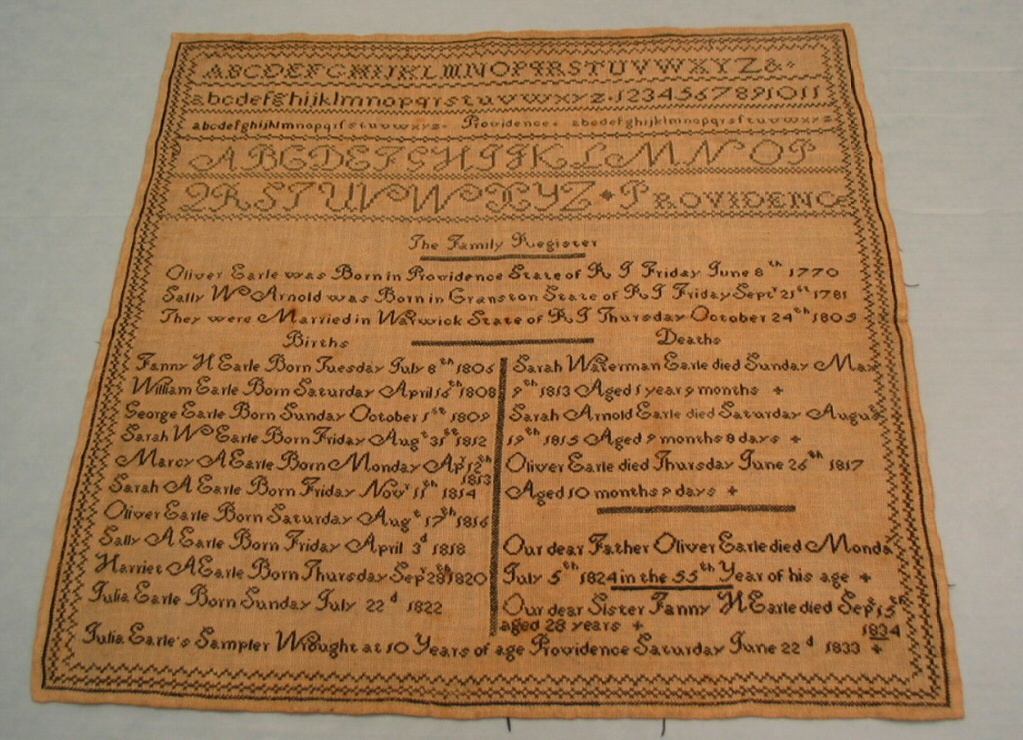 ABCDEFGHIJKLMNOPQRSTUVWXYZ&
abcdefghijklmnopqrstuvwxyz.1234567891011
abcdefghijklmnopqrſstuvwxyz. Providence. abcdefghijklmnopqrſstuvwxyz
ABCDEFGHIJKLMNOP
QRSTUVWXYZ PROVIDENCE
The Family Register
Oliver Earle was Born in Providence State of R I Friday June 8th 1770
Sally W Arnold was Born in Cranston State of R I Friday Septr 21st 1781
They were Married in Warwick State of R I Thursday October 24th 1805
Births
Deaths
Fanny H Earle Born Tuesday July 8th 1806
William Earle Born Saturday April 16th 1808
George Earle Born Sunday October 1st 1809
Sarah W Earle Born Friday Augt 31st 1812
Marcy A Earle Born Monday Apr 12th 1813
Sarah A Earle Born Friday Novr 11th 1814
Oliver Earle Born Saturday Augt 17th 1816
Sally A Earle Born Friday April 3d 1818
Harriet A Earle Born Thursday Sepr 28th 1820
Julia Earle Born Sunday July 22d 1822
Sarah Waterman Earle died Sunday May
9th 1813 Aged 1 year 9 months +
Sarah Arnold Earle died Saturday August
19th 1815 Aged 9 months 8 days +
Oliver Earle died Thursday June 26th 1817
Aged 10 months 9 days +
Our dear Father Oliver Earle died Monda
July 5th 1824 in the 55th Year of his age +
Our dear Sister Fanny H Earle died Sept 15th
aged 28 years + 1834
Julia Earle's Sampler Wrought at 10 Years of age Providence Saturday June 22d 1833 +